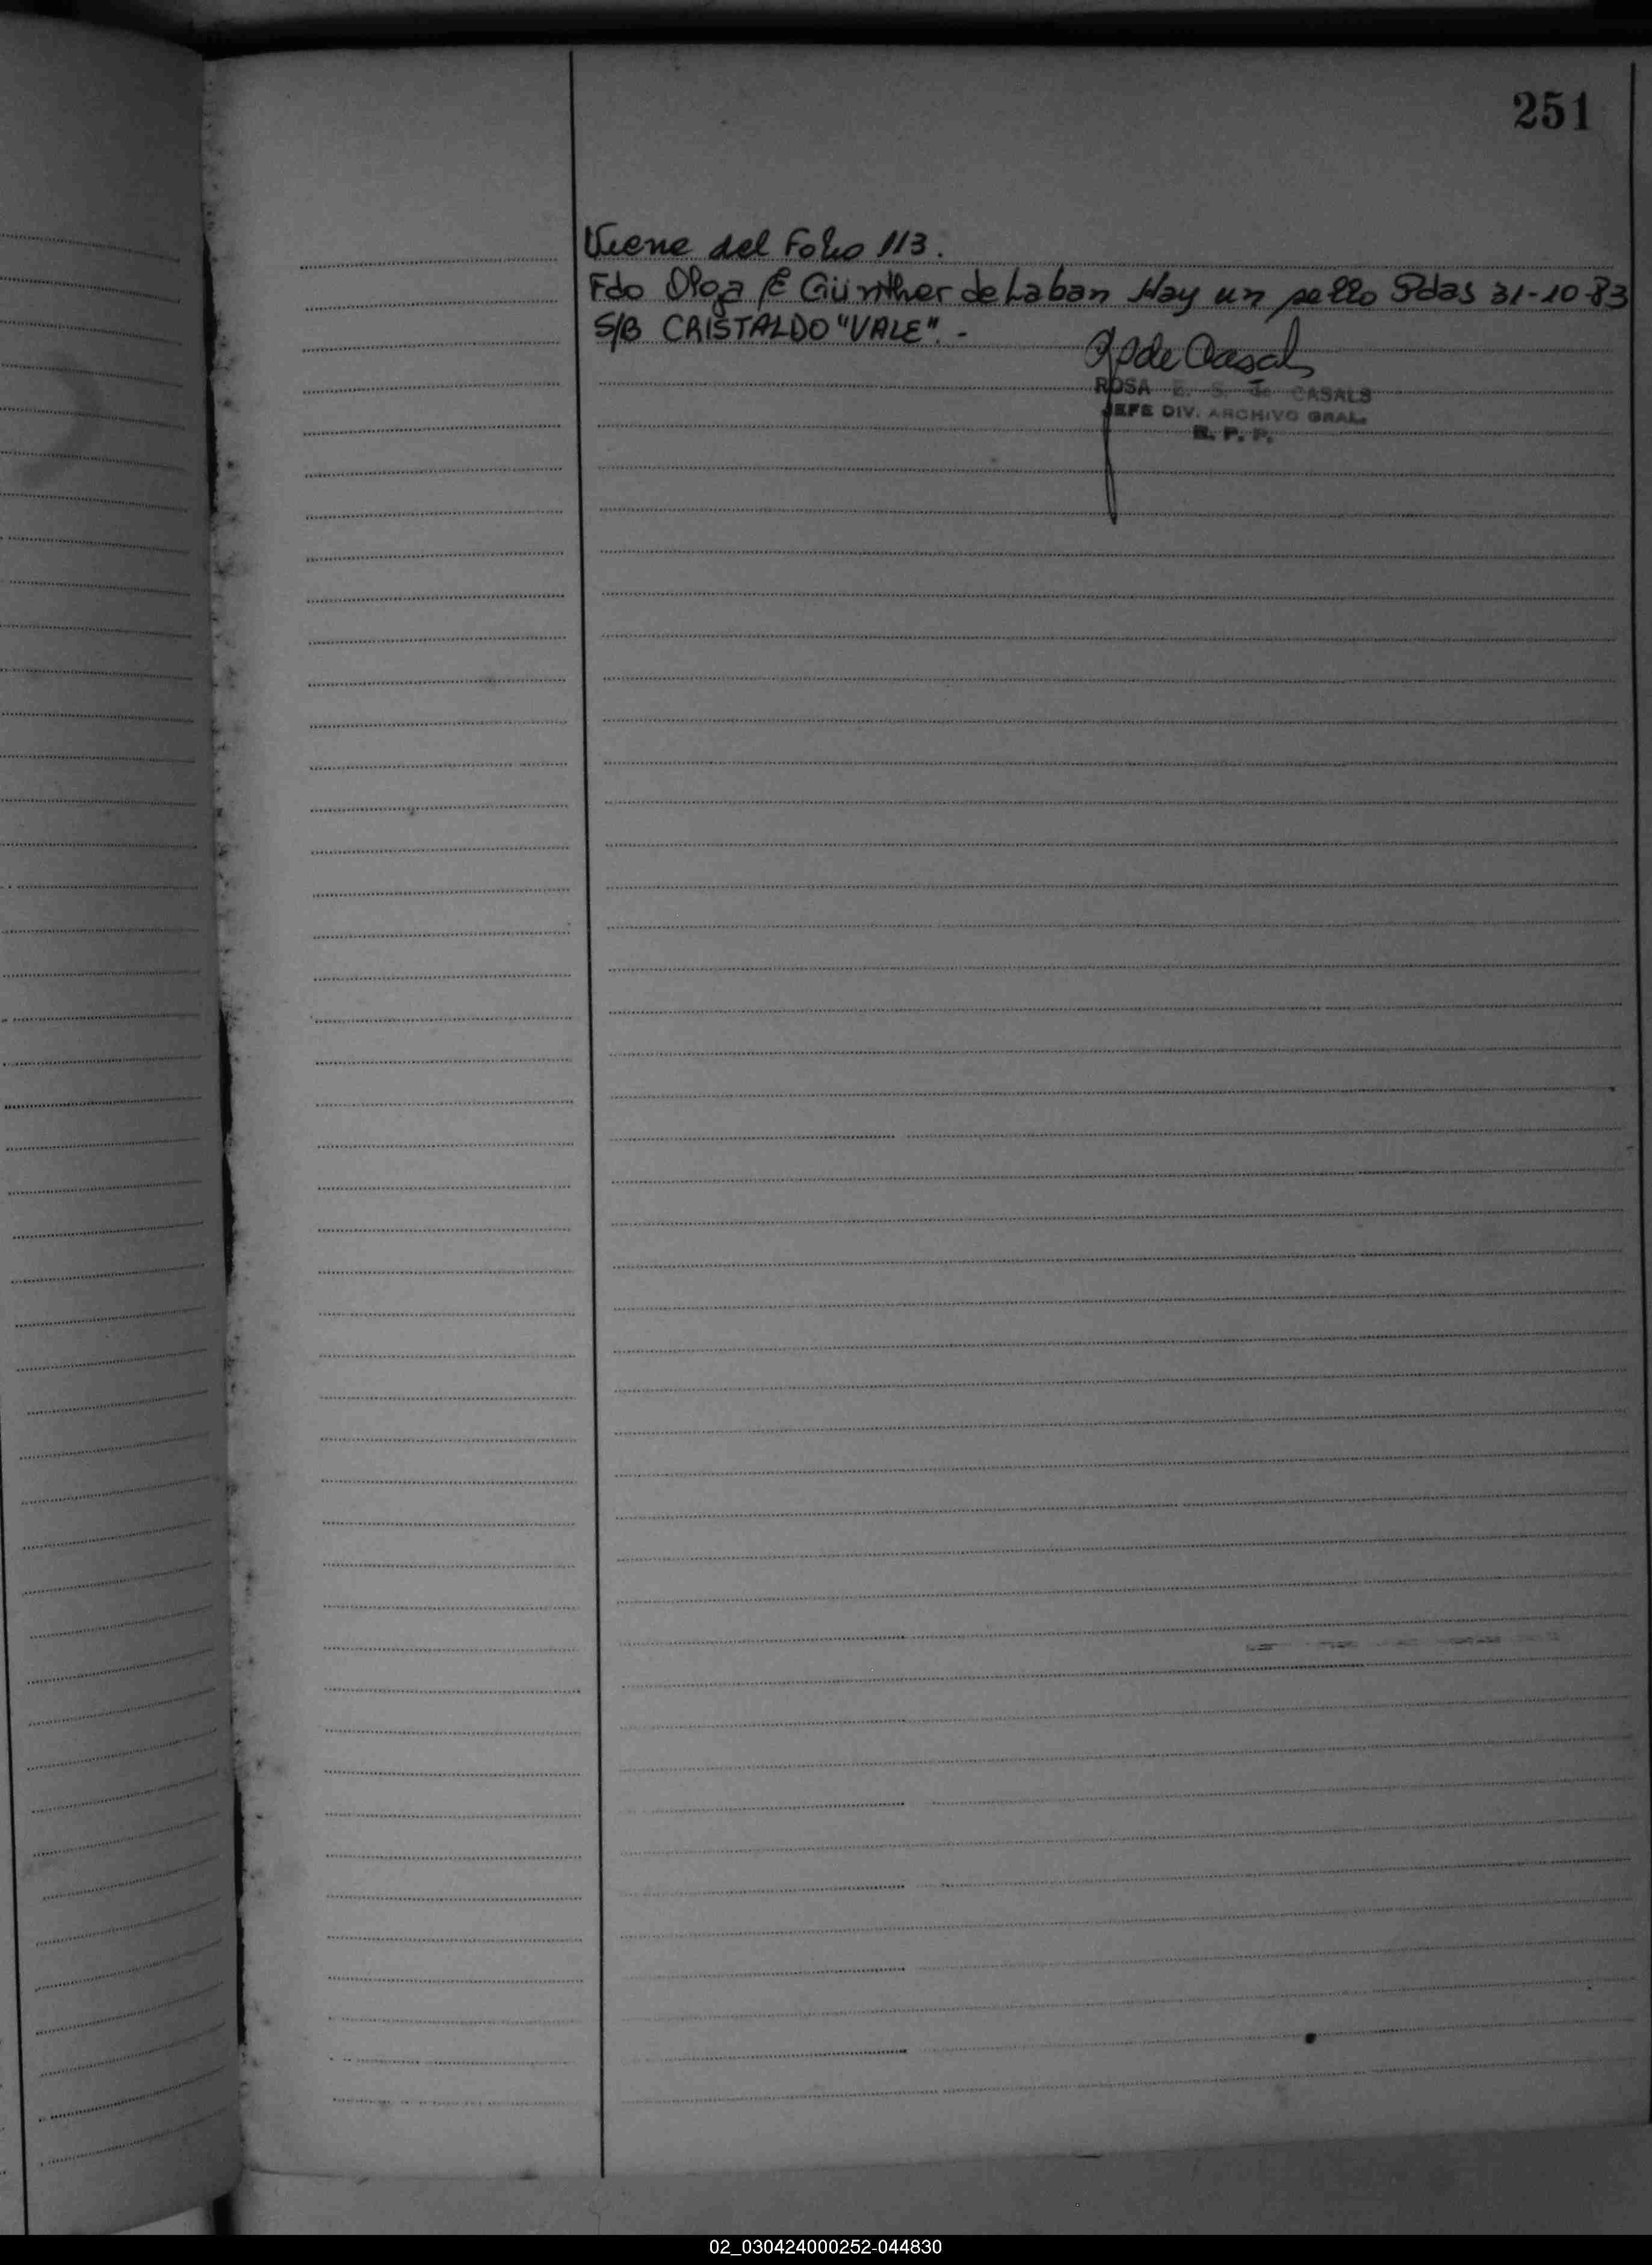 251
Viene del Folio 113.
Fdo Olga E Günther de Laban Hay un sello Pdas 31-10-83
S/B CRISTALDO "VALE". -
ROSA E. S. de CASALS
JEFE DIV. ARCHIVO GRAL.
R. P. P.
02_030424000252-044830